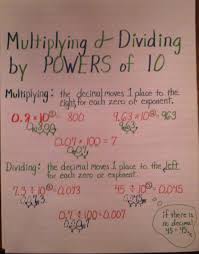 Multiplying & Dividing
by POWERS of 10
Multiplying: the decimal moves 1 place to the
right for each zero or exponent.
= 800 = 963
0.07 × 100 = 7
Dividing: the decimal moves 1 place to the left
for each zero or exponent.
7.3 ÷ 10 = 0.073 45 ÷ 10 = 0.045
0.7 ÷ 100 = 0.007
if there is
no decimal
45 = 45.